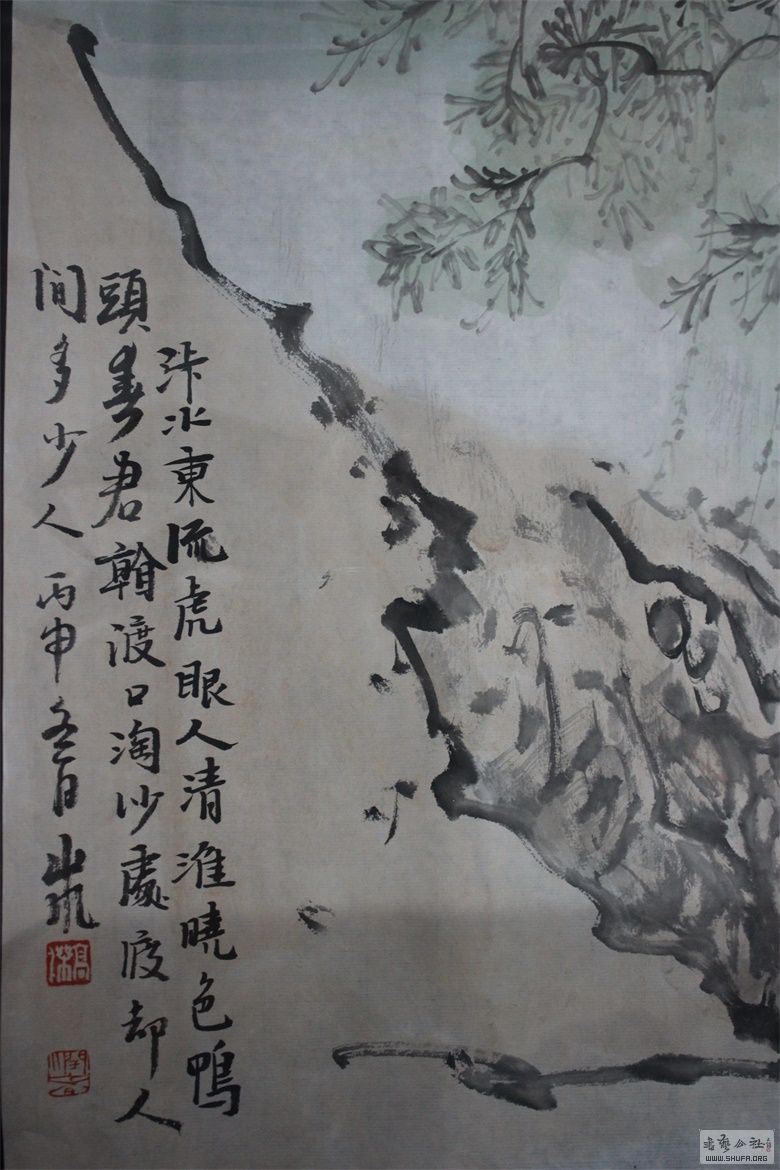 汴水東流虎眼人清淮曉色鴨
頭春君翰渡口淘沙處度却人
間多少人 丙申冬日
書藝公社
WWW.SHUFA.ORG